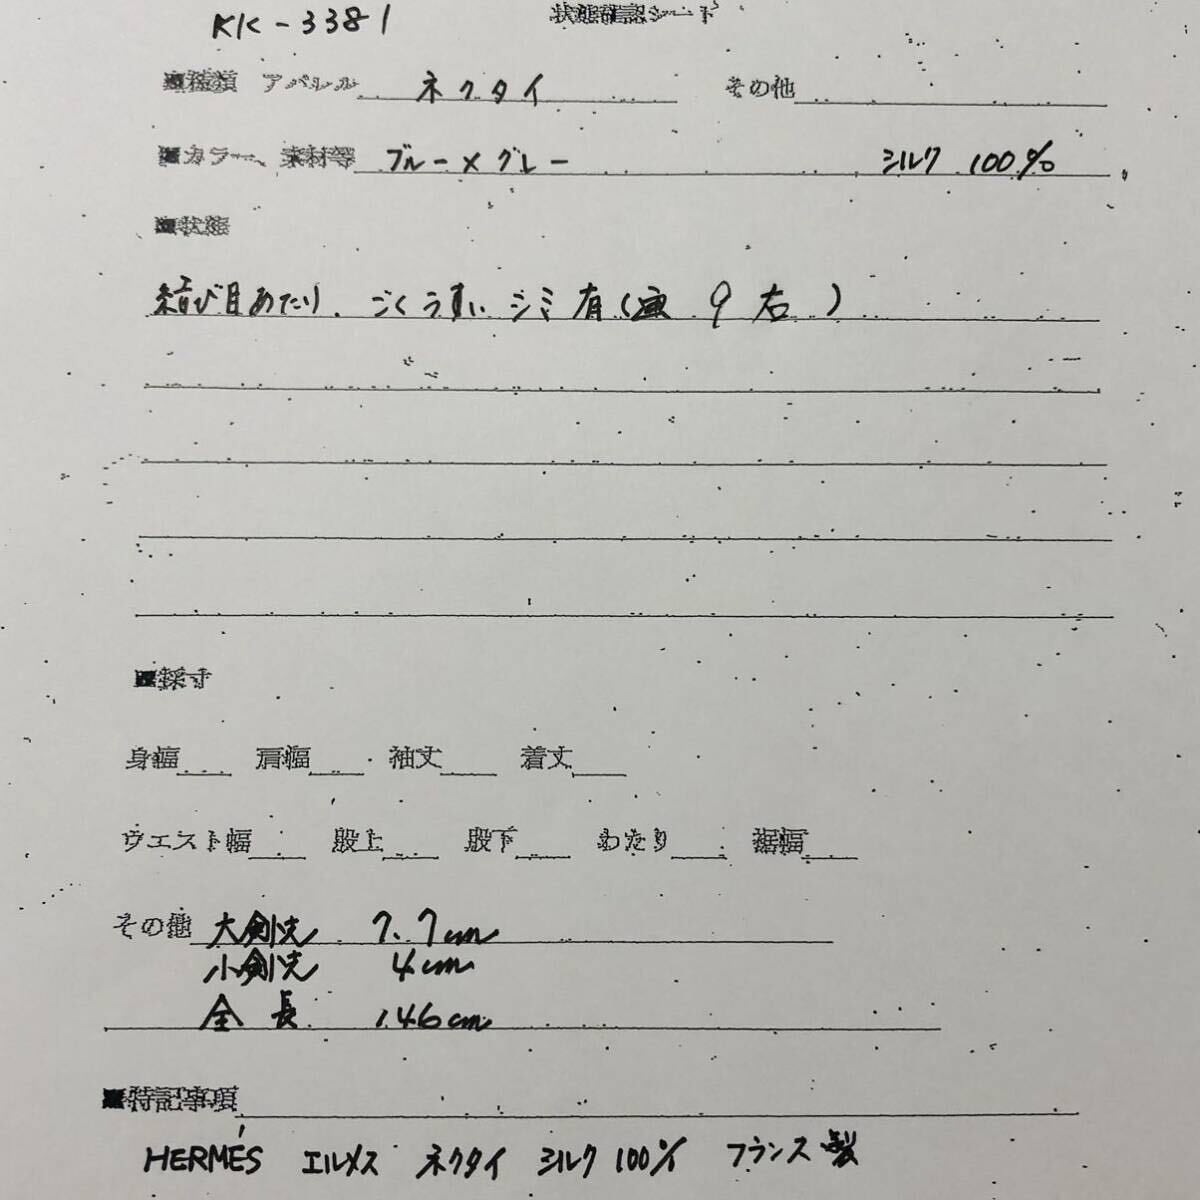 KK-3381
状態確認シート
■種類 アパレル ネクタイ その他
■カラー、素材等 ブルー×グレー シルク 100%
■状態
結び目あたり、ごくうすいシミ有(画 9 右 )
■採寸
身幅 肩幅 袖丈 着丈
ウエスト幅 股上 股下 わたり 裾幅
その他 大剣先 7.7cm
小剣先 4cm
全長 146cm
■特記事項
HERMÉS エルメス ネクタイ シルク100% フランス製